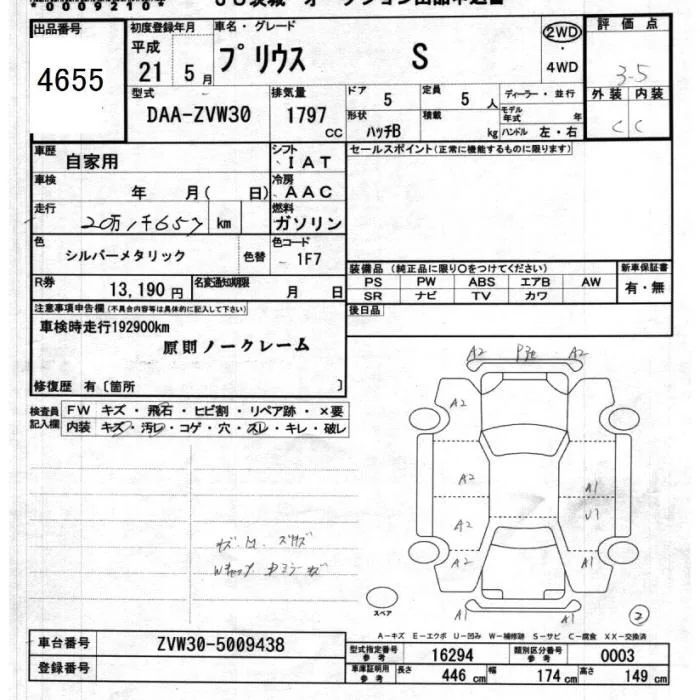 00092104
出品番号 4655
初度登録年月 平成 21 5月
車名・グレード プリウス S
2WD・4WD
評価点 3-5
外装 内装
C C
型式 DAA-ZVW30
排気量 1797 CC
ドア 5 定員 5人
ディーラー・並行
モデル年式 年
形状 ハッチB 積載 kg ハンドル 左・右
車歴 自家用
シフト IAT
セールスポイント(正常に機能するものに限ります)
車検 年 月( 日)
冷房 AAC
走行 km
燃料 ガソリン
色 シルバーメタリック 色替
色コード 1F7
装備品(純正品に限り○をつけてください)
新車保証書
PS PW ABS エアB AW
有・無
SR ナビ TV カワ
R券 13,190円
名変通知期限 月 日
後日品
注意事項申告欄(不具合内容等は具体的に記入して下さい)
車検時走行192900km
原則ノークレーム
修復歴 有〔箇所 〕
検査員記入欄
FW キズ・飛石・ヒビ割・リペア跡・×要
内装 キズ・汚レ・コゲ・穴・スレ・キレ・破レ
A2 A2
A2
A2 A1
A2 U1
A2 A1
A1 A1
スペア
2
A-キズ E-エクボ U-凹み W-補修跡 S-サビ C-腐食 XX-交換済
車台番号 ZVW30-5009438
登録番号
型式指定番号 参考 16294
類別区分番号 参考 0003
車庫証明用 参考 長さ 446 cm 幅 174 cm 高さ 149 cm